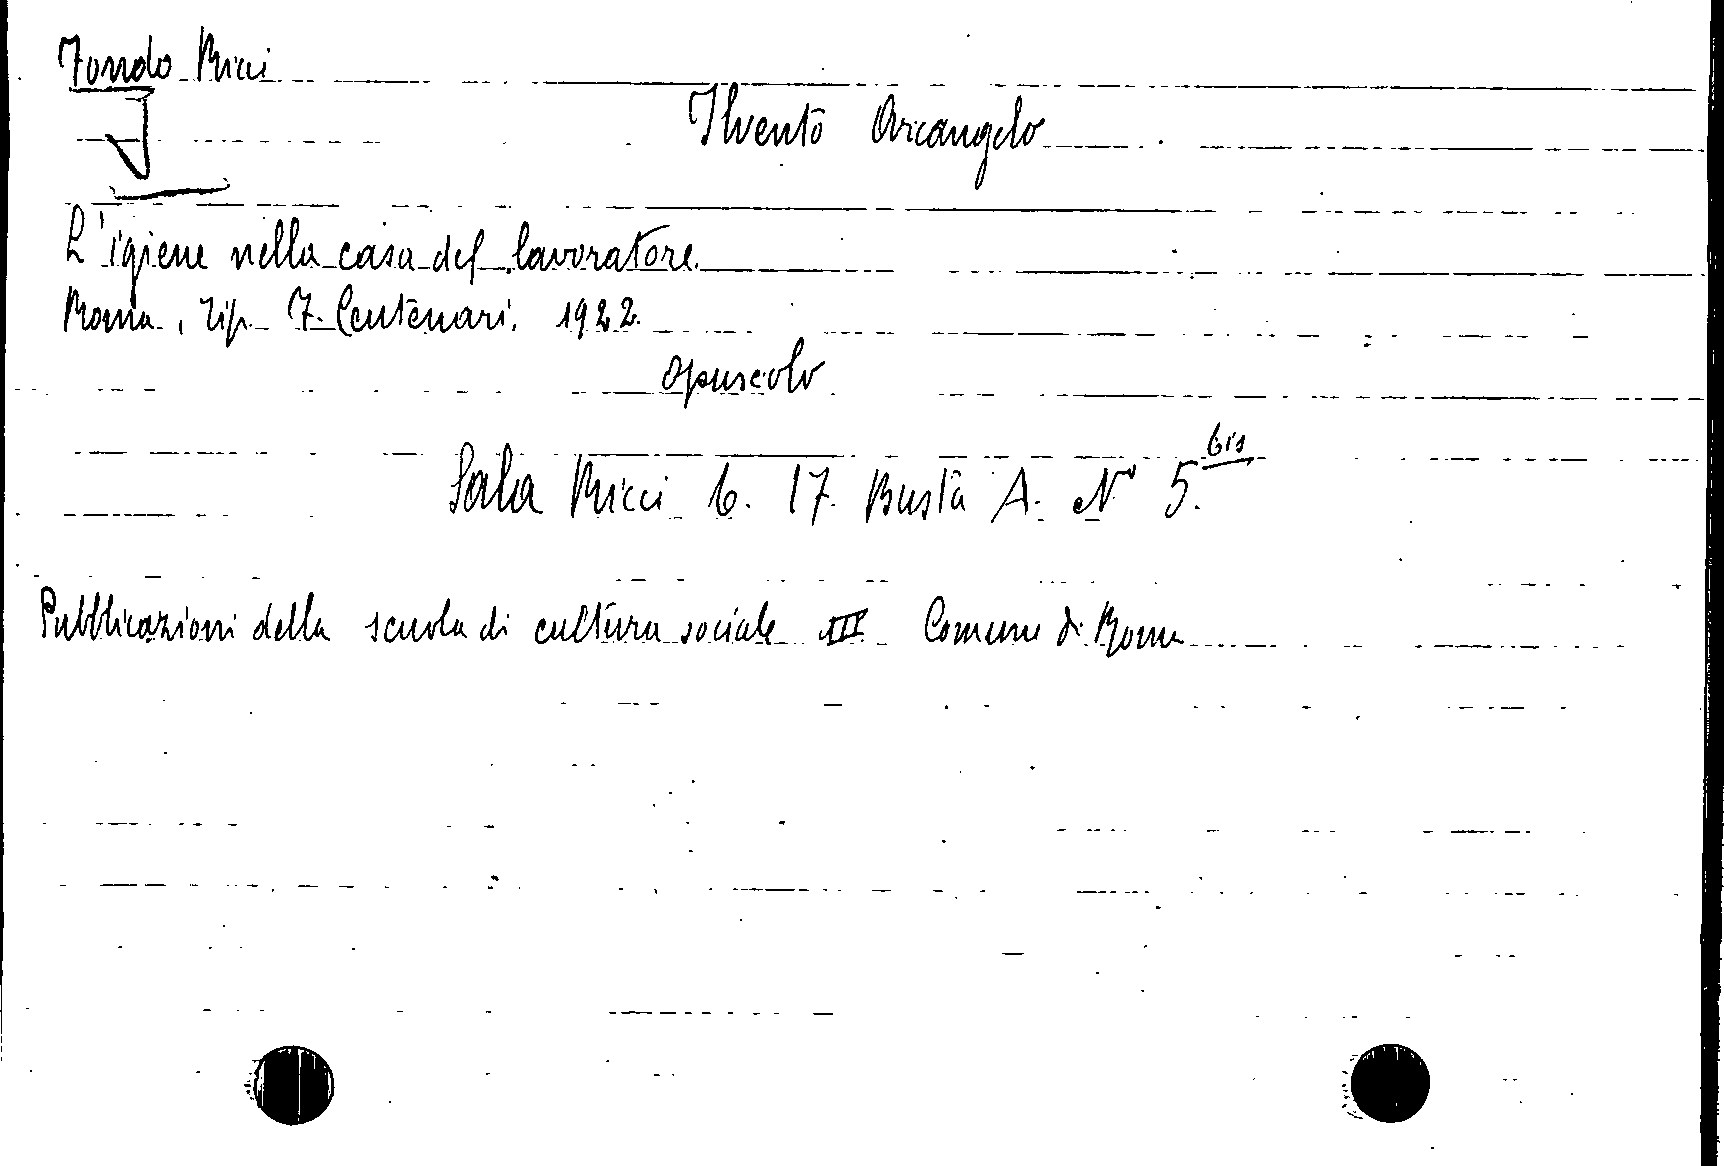 Fondo Ricci
I
Ilvento Arcangelo
L'igiene nella casa del lavoratore
Roma, Tip. F. Centenari, 1922.
opuscolo
Sala Ricci 6. 17. Busta A. N° 5. bis
Pubblicazioni della scuola di cultura sociale III Comune di Roma